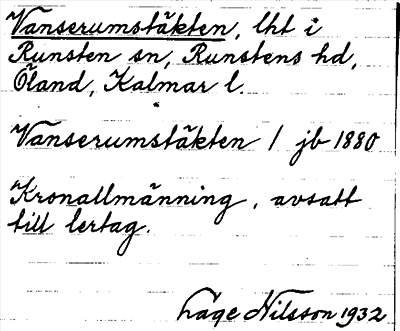 Vanserumstäkten, lht i
Runsten sn, Runstens hd,
Öland, Kalmar l.
Vanserumstäkten / jb 1880
Kronallmänning, avsatt
till lertag.
Låge Nilsson 1932